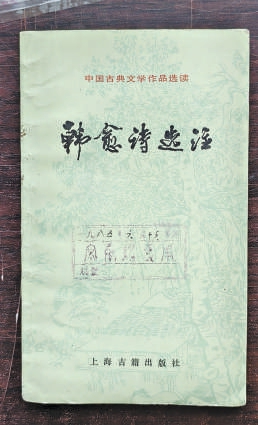 中国古典文学作品选读
韩愈诗选注
上海古籍出版社